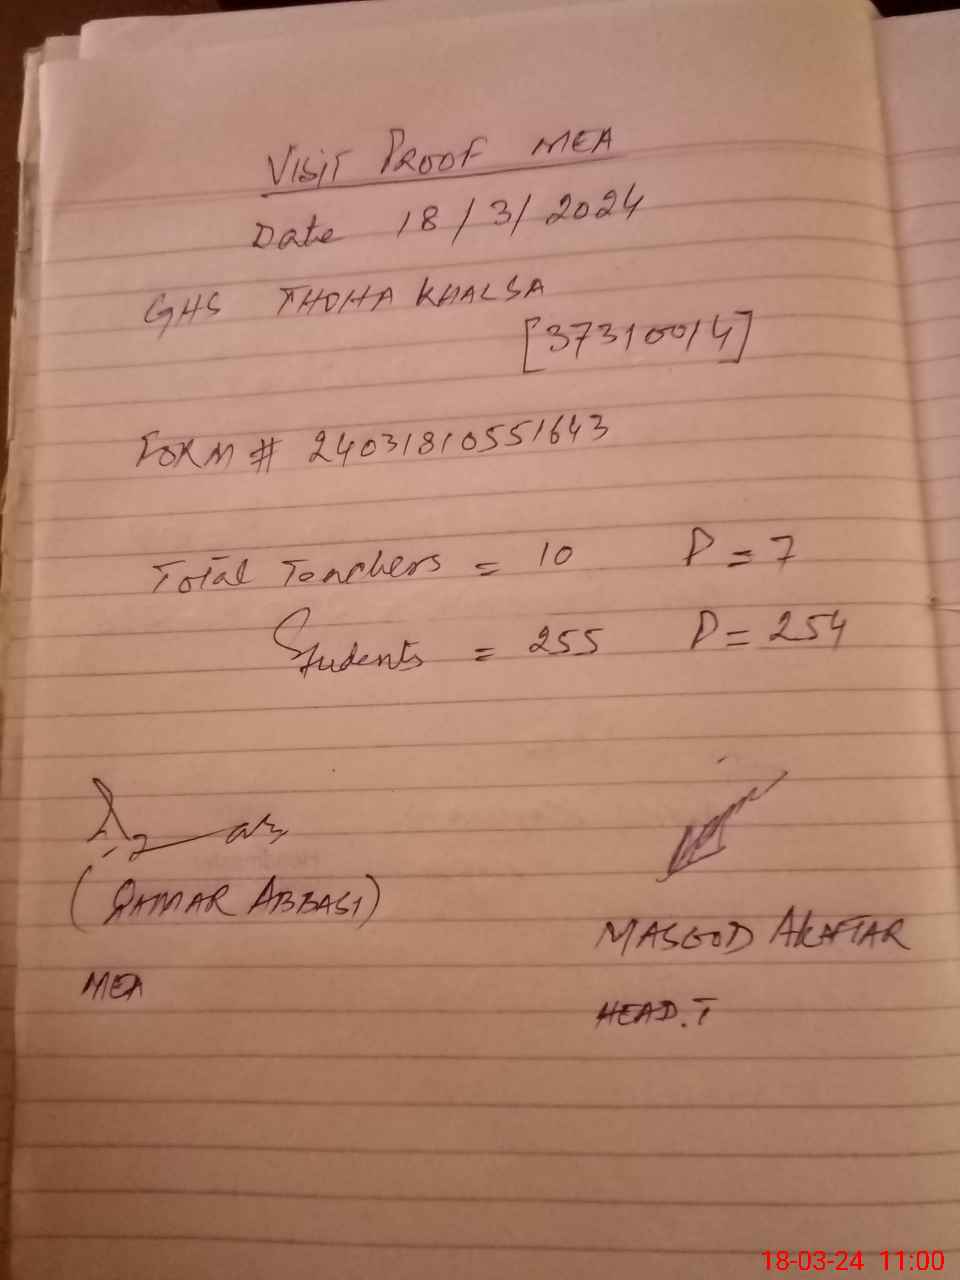 VISIT PROOF MEA
Date 18/3/2024
GHS THOHA KHALSA
[37310014]
FORM # 24031810551643
Total Teachers = 10 P = 7
Students = 255 P = 254
(QAMAR ABBASI)
MEA
MASOOD AKHTAR
HEAD.T
18-03-24 11:00